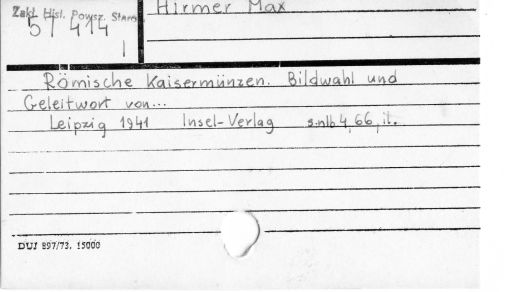 Zakł. Hist. Powsz. Staroż.
57 414
I
Hirmer Max
Römische Kaisermünzen. Bildwahl und
Geleitwort von...
Leipzig 1941 Insel-Verlag s.nlb 4, 66, il.
DUJ 897/73. 15000